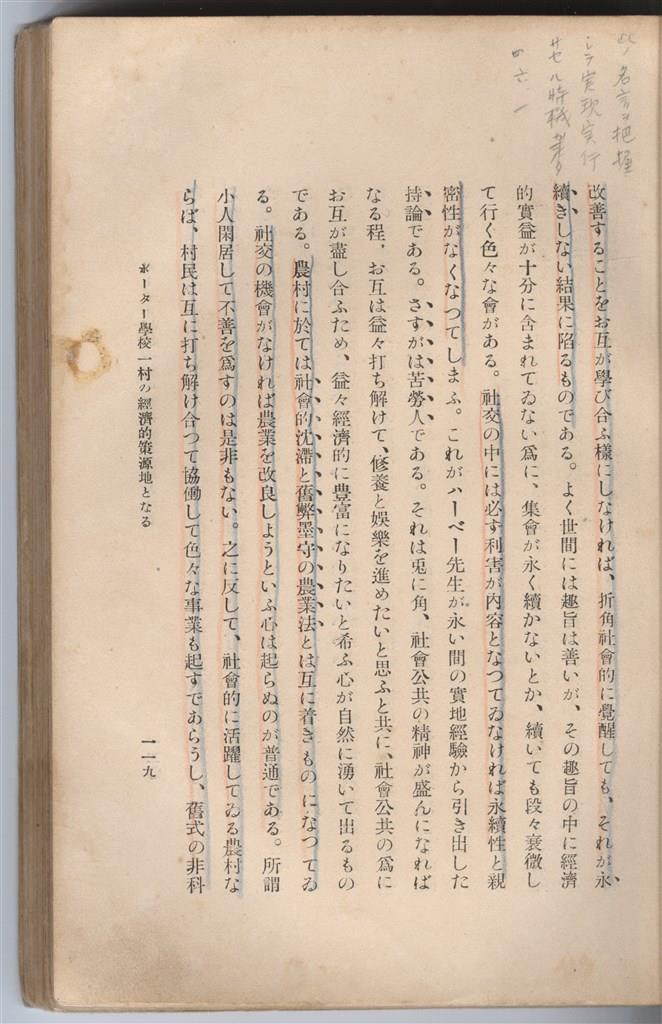 此ノ名言ヲ把握
シテ実現実行
サセル時機来リ
四六一
改善することをお互が學び合ふ樣にしなければ、折角社會的に覺醒しても、それが永
續きしない結果に陷るものである。よく世間には趣旨は善いが、その趣旨の中に經濟
的實益が十分に含まれてゐない爲に、集會が永く續かないとか、續いても段々衰微し
て行く色々な會がある。社交の中には必ず利害が內容となつてゐなければ永續性と親
密性がなくなつてしまふ。これがハーベー先生が永い間の實地經驗から引き出した
持論である。さすがは苦勞人である。それは兎に角、社會公共の精神が盛んになれば
なる程、お互は益々打ち解けて、修養と娛樂を進めたいと思ふと共に、社會公共の爲に
お互が盡し合ふため、益々經濟的に豐富になりたいと希ふ心が自然に湧いて出るもの
である。農村に於ては社會的沈滯と舊弊墨守の農業法とは互に着きものになつてゐ
る。社交の機會がなければ農業を改良しようといふ心は起らぬのが普通である。所謂
小人閑居して不善を爲すのは是非もない。之に反して、社會的に活躍してゐる農村な
らば、村民は互に打ち解け合つて協働して色々な事業も起すであらうし、舊式の非科
ポーター學校―村の經濟的策源地となる
一一九